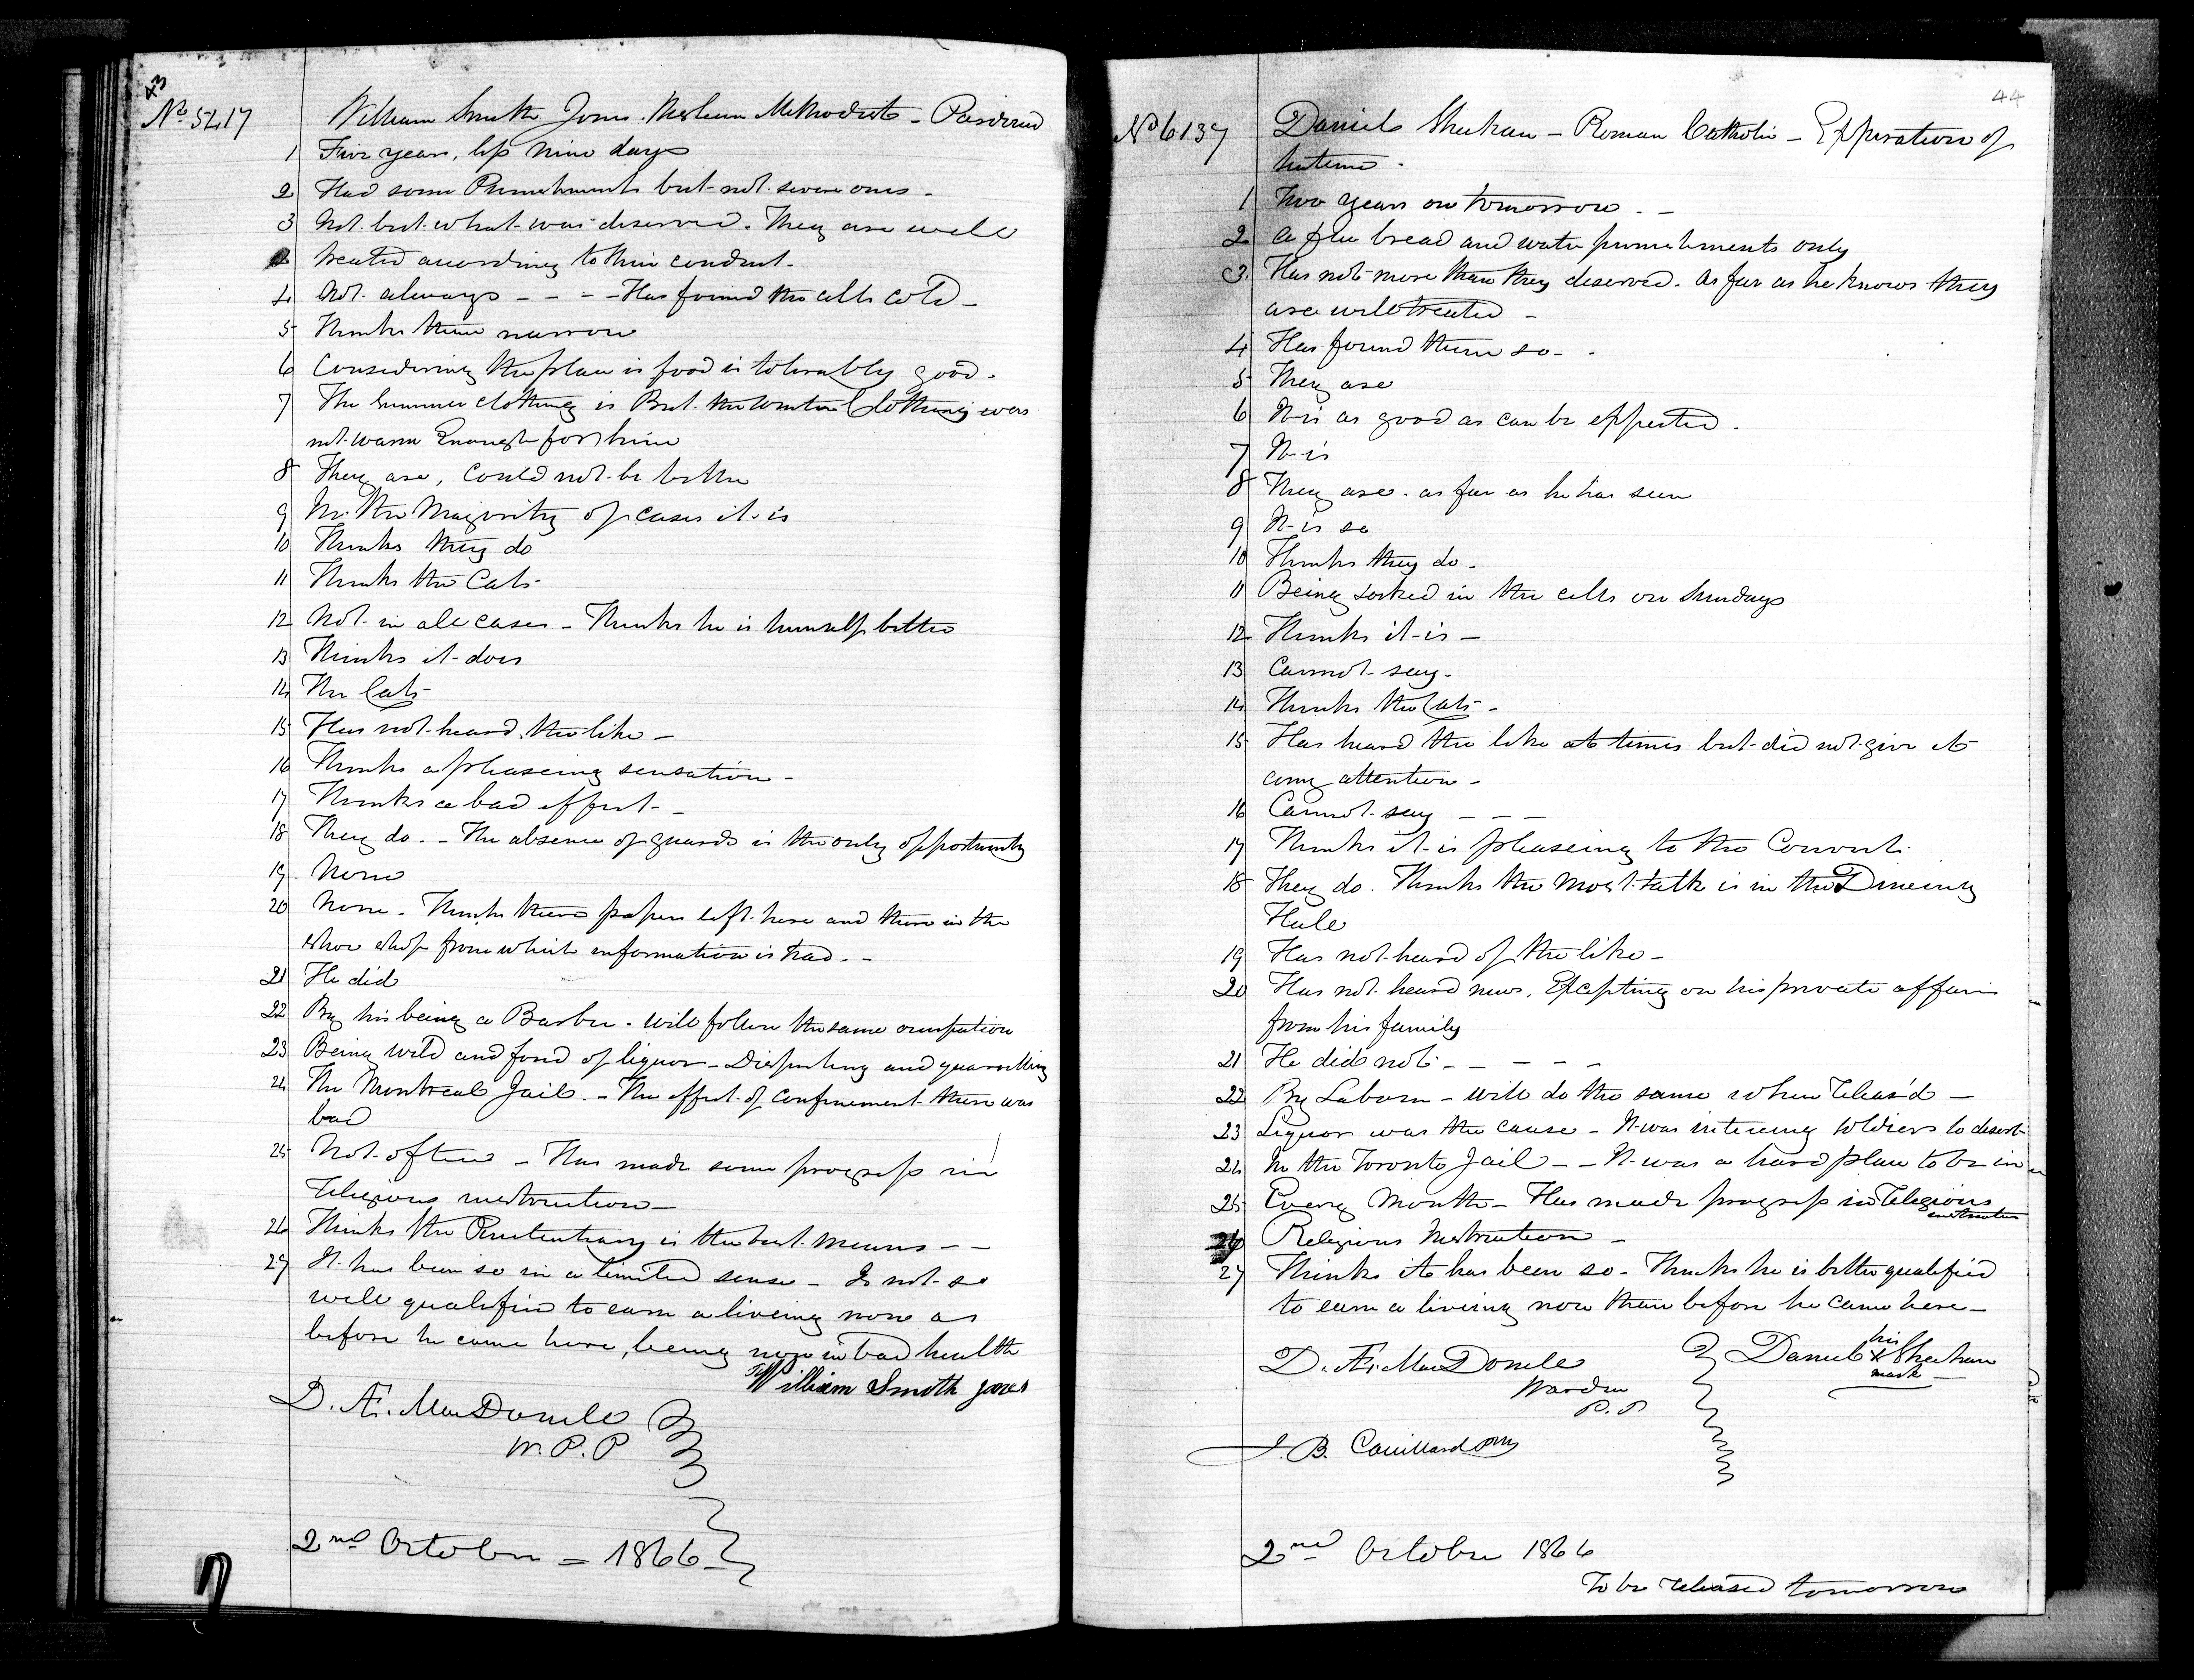 43
No 5417 William Smith Jones. Weslean Methodist - Pardoned
1 Five years, less nine days
2 Had some Punishments but not severe ones -
3 Not but what was deserved. They are well
treated according to their conduct.
4 Not always - - - - Has found the cells cold -
5 Thinks them narrow
6 Considering the place is food is tolerably good.
7 The Summer clothing is But the winter Clothing was
not warm Enough for him
8 They are, could not be better
9 In the Majority of cases it is
10 Thinks they do
11 Thinks the Cats
12 Not in all cases - Thinks he is himself better
13 Thinks it does
14 The Cats
15 Has not heard the like -
16 Thinks a pleaseing sensation -
17 Thinks a bad effect -
18 They do. - The absence of guards is the only opportunity
19 None
20 None - Thinks there papers left here and there in the
shoe shop from which information is had. -
21 He did
22 By his being a Barber. will follow the same occupation
23 Being wild and fond of liquor - Disputing and quarrelling
24 The Montreal Jail. - The effect of confinement there was
bad
25 Not often - Has made some progress in
religious instruction -
26 Thinks the Penitentiary is the best means - -
27 It has been so in a limited sense - Is not so
well qualified to earn a liveing now as
before he came here, being now in bad health
William Smith Jones
D. Æ. MacDonell
W. P. P
2nd October = 1866 -
44
No 6137 Daniel Sheehan - Roman Catholic - Expiration of
sentence.
1 Two years on tomorrow. -
2 a few bread and water punishments only
3 Has not more than they deserved. As far as he knows they
are well treated -
4 Has found them so - .
5 They are
6 It is as good as can be expected.
7 It is
8 They are. as far as he has seen
9 It is so
10 Thinks they do.
11 Being locked in the cells on Sundays
12 Thinks it is -
13 Cannot say.
14 Thinks the Cats -
15 Has heard the like at times but did not give it
any attention -
16 Cannot say - - -
17 Thinks it is pleaseing to the Convict.
18 They do. Thinks the most talk is in the Dineing
Hall
19 Has not heard of the like -
20 Has not heard news, Excepting on his private affairs
from his family
21 He did not - - - - -
22 By Labour - will do the same when releas'd -
23 Liquor was the cause - It was inticeing soldiers to desert
24 In the Toronto Jail - - It was a hard place to be in
25 Every Month - Has made progress in religious
instruction
26 Religious Instruction -
27 Thinks it has been so - Thinks he is better qualified
to earn a liveing now than before he came here -
D. Æ. MacDonell
Warden
P. P
Daniel his X mark Sheehan
J. B. Couillard
2nd October 1866
To be released tomorrow